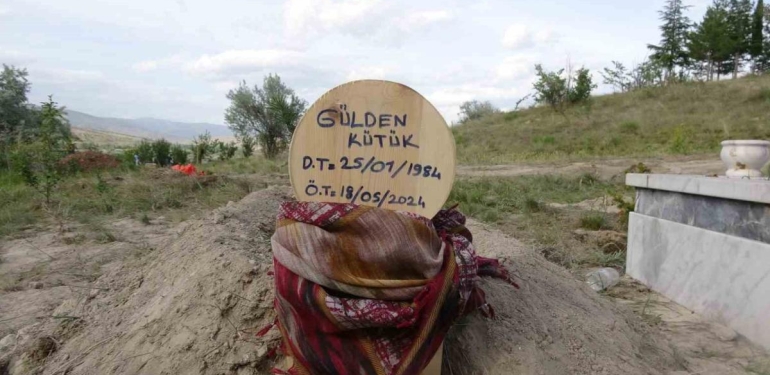 GÜLDEN
KÜTÜK
D.T= 25/01/1984
Ö.T= 18/05/2024